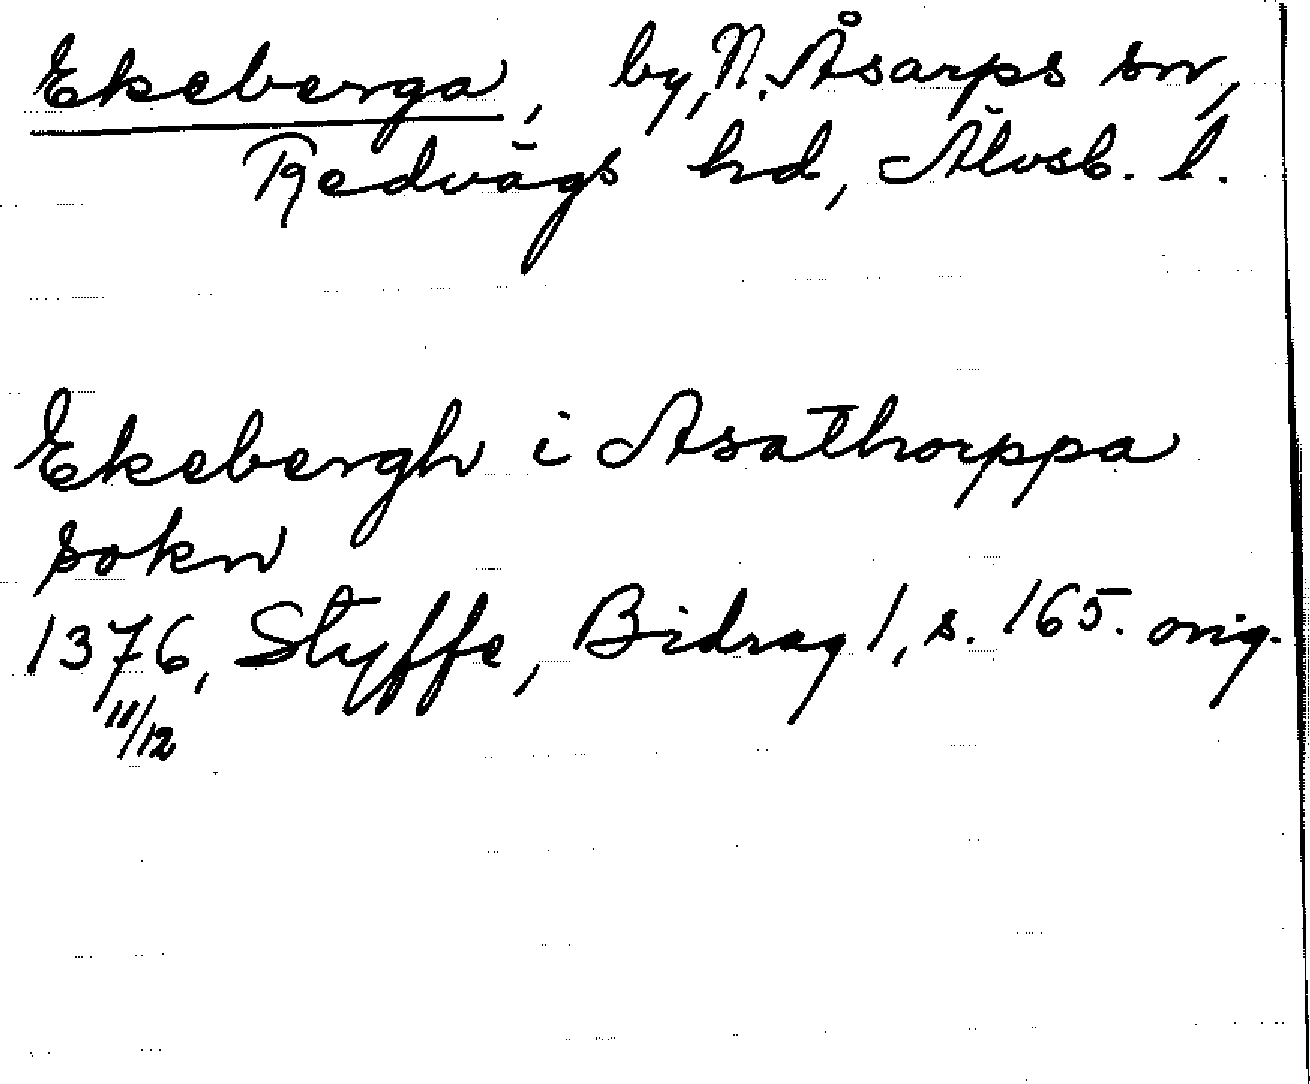 Ekeberga, by, N. Åsarps sn,
Redvägs hd, Älvsb. l.
Ekebergh i Asathorppa
sokn
1376, Styffe, Bidrag 1, s. 165. orig.
11/12